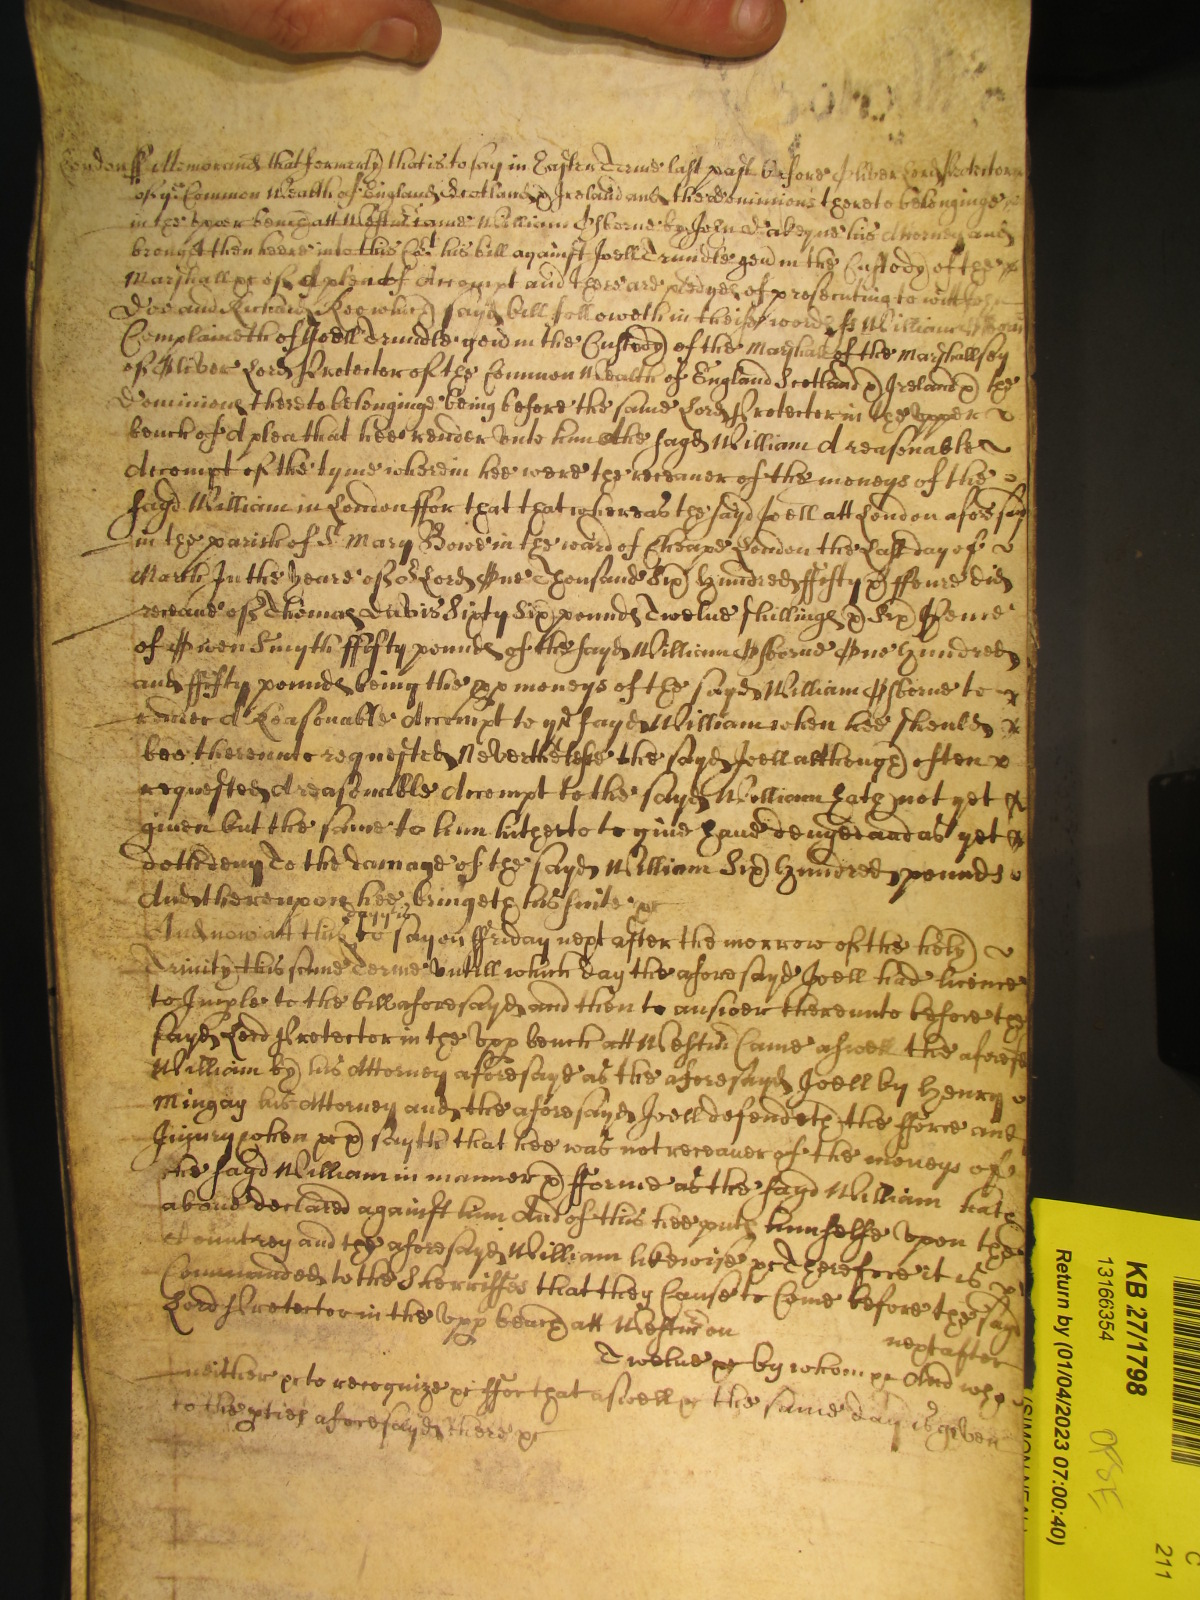 London ss Memorand that formerly that is to say in Easter Terme last past before Oliver Lord Protector
of ye Common Wealth of England Scotland & Ireland and the dominions thereto belonginge
in the upper bench att Westm Came William Osborne by John his Attorney and
brought then heere into this Cort his bill against Joell Trundle gent in the Custody of the
Marshall &c of A plea of Accompt and there are pledges of prosecuting to witt John
Doe and Richard Roe which sayd bill followeth in theise words ss William Osborne
Complaineth of Joell Trundle gent in the Custody of the Marshall of the Marshallsey
of Oliver Lord Protector of the Common Wealth of England Scotland & Ireland & the
Dominions thereto belonginge being before the same Lord Protector in the upper
bench of A plea that hee render unto him the sayd William A reasonable
Accompt of the tyme wherein hee were the receaver of the moneys of the
sayd William in London ffor that that whereas the sayd Joell att London aforesayd
in the parish of St Mary Bowe in the ward of Cheape London the Last day of
March In the yeare of or Lord One Thousand Six hundred ffifty & ffoure did
receave of Thomas Davis Sixty Six pounds Twelve shillings & Six Pence
of Owen Smyth ffifty pounds of the sayd William Osborne One hundred
and ffifty pounds being the ꝓꝑ moneys of the sayd William Osborne to
render A Reasonable Accompt to ye sayd William when hee should
bee thereunto requested Neverthelesse the sayd Joell although often
requested A reasonable Accompt to the sayd William hath not yet
given but the same to him hitherto to give have denyed and as yet
doth deny To the damage of the sayd William Six hundred pounds
And thereupon hee bringeth his suite &c
And now att this day yt is to say on ffriday next after the morrow of the holy
Trinity this same Terme Untill which day the aforesayd Joell had licence
to Imple to the bill aforesayd and then to answer thereunto before the
sayd Lord Protector in the Upp bench att Westm Came aswell the aforesd
William by his Attorney aforesayd as the aforesayd Joell by Henry
Mingay his Attorney and the aforesayd Joell defendeth the fforce and
Injury when &c & sayth that hee was not receaver of the moneys of
the sayd William in manner & fforme as the sayd William hath
above declared against him And of this hee puts himselfe Upon the
Countrey and the aforesayd William likewise &c Therefore it is
Commanded to the Sherriffes that they Cause to Come before the sayd
Lord Protector in the Upp bench att Westm on next after
Twelve &c by whom &c And who
neither &c to recognize &c ffor that aswell &c the same day is given
to the pties aforesayd there &c
KB 27/1798
13166354
Return by (01/04/2023 07:00:40)
211